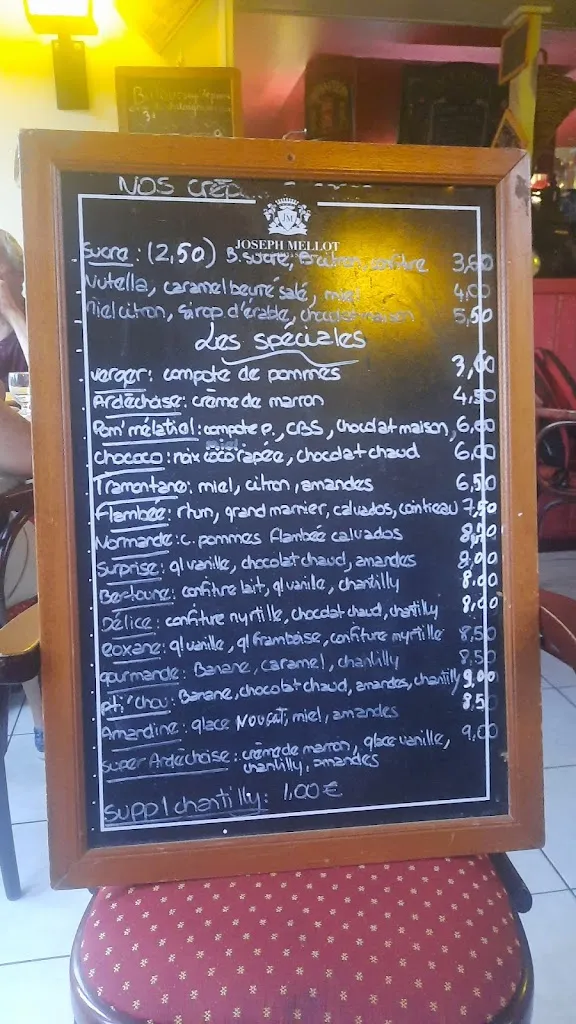 NOS
JM
JOSEPH MELLOT
Sucre : (2,50) B.sucre, B citron, confitre 3,60
Nutella, caramel beurré salé, miel 4,00
Miel citron, sirop d'érable, chocolat maison 5,50
Les spéciales
Verger : compote de pommes 3,60
Ardéchoise : crème de marron 4,50
Pom' mélatiol : compote p., CBS, chocolat maison, 6,00
miel
Chococo : noix coco rapée, chocolat chaud 6,00
Tramontane : miel, citron, amandes 6,50
Flambée : rhum, grand marnier, calvados, cointreau 7,50
Normande : c. pommes flambée calvados
Surprise : gl vanille, chocolat chaud, amandes 8,00
Bertoune : confitre lait, gl vanille, chantilly 8,00
Délice : confiture myrtille, chocolat chaud, chantilly 8,00
Roxane : gl vanille, gl framboise, confiture myrtille 8,50
gourmande : Banane, caramel, chantilly 8,50
pti'chou : Banane, chocolat chaud, amandes, chantilly 9,00
Amandine : glace NOUGAT, miel, amandes 8,50
Super Ardéchoise : crème de marron, glace vanille, 9,00
chantilly, amandes
suppl chantilly : 1,00 €